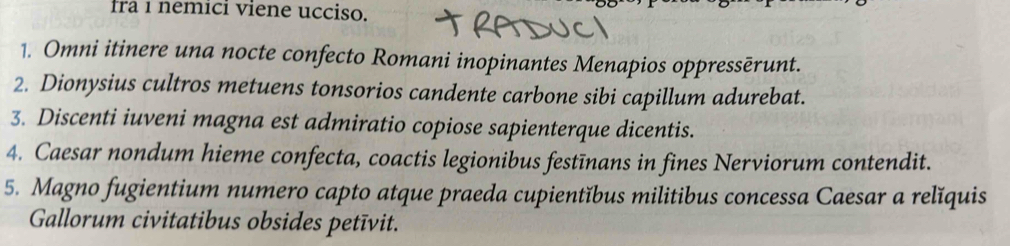 fra i nemici viene ucciso.
+ TRADUCI
1. Omni itinere una nocte confecto Romani inopinantes Menapios oppressērunt.
2. Dionysius cultros metuens tonsorios candente carbone sibi capillum adurebat.
3. Discenti iuveni magna est admiratio copiose sapienterque dicentis.
4. Caesar nondum hieme confecta, coactis legionibus festīnans in fines Nerviorum contendit.
5. Magno fugientium numero capto atque praeda cupientĭbus militibus concessa Caesar a relĭquis
Gallorum civitatibus obsides petīvit.